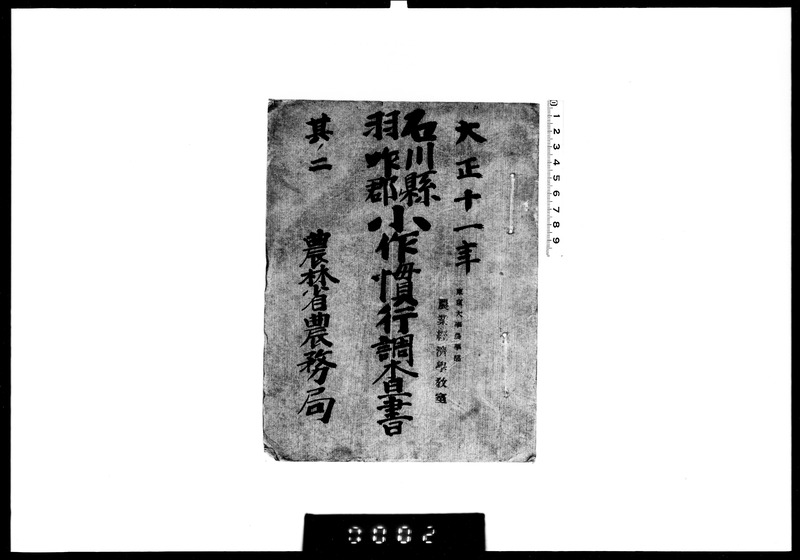 大正十一年
東京大學農學部
農業經濟學教室
石川縣
羽咋郡
小作慣行調査書
其ノ二
農林省農務局
0 1 2 3 4 5 6 7 8 9
0002